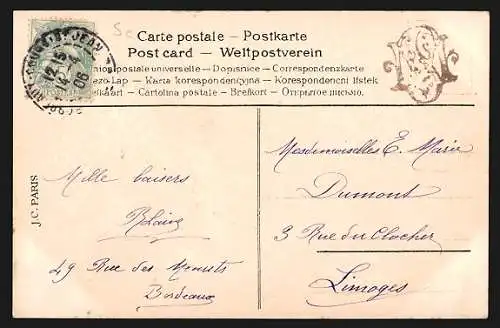 Carte postale - Postkarte
Post card - Weltpostverein
Union postale universelle - Dopisnice - Correspondenzkarte
Levelezo-Lap - Karta korespondencyjna - Korespondencni listek
Brefkaart - Cartolina postale - Brefkort - Открытое письмо.
ST JEAN
12 45
4
06
J.C. PARIS
Mille baisers
49 Rue des
Bordeaux
Mesdemoiselles E. Marie
Dumont
3 Rue du Clocher
Limoges